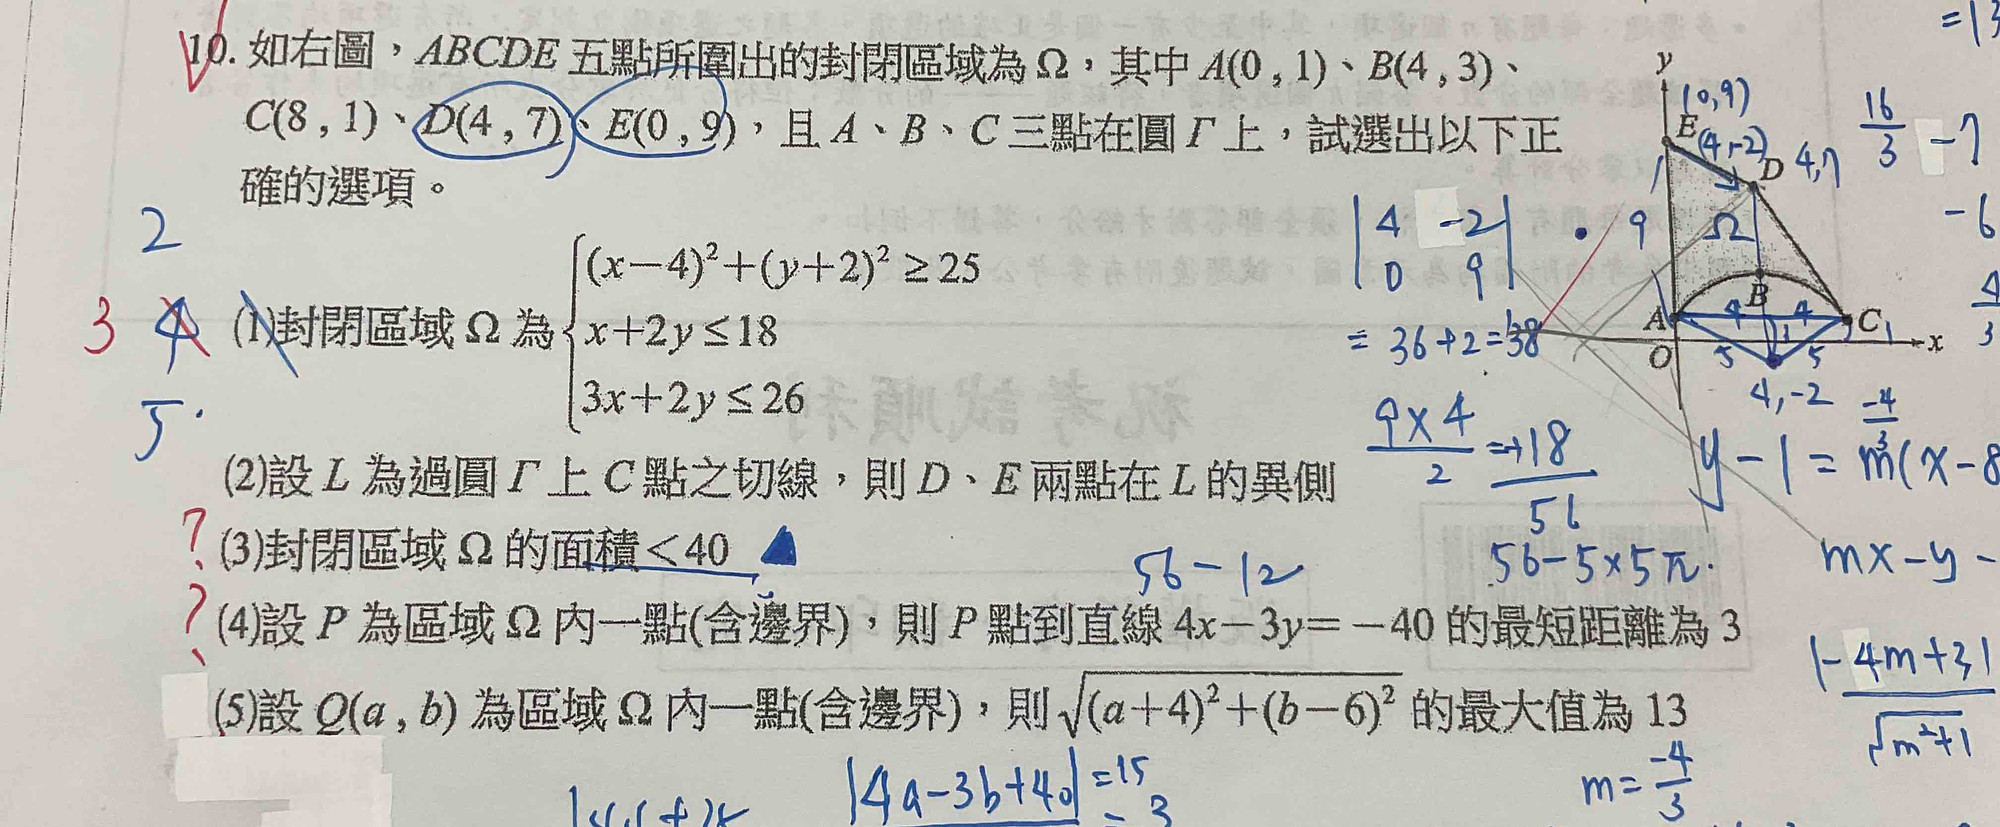 10. 如右圖，ABCDE 五點所圍出的封閉區域為 Ω，其中 A(0 , 1)、B(4 , 3)、
C(8 , 1)、D(4 , 7)、E(0 , 9)，且 A、B、C 三點在圓 Γ 上，試選出以下正
確的選項。
(1)封閉區域 Ω 為
(x−4)²+(y+2)² ≥ 25
x+2y ≤ 18
3x+2y ≤ 26
(2)設 L 為過圓 Γ 上 C 點之切線，則 D、E 兩點在 L 的異側
(3)封閉區域 Ω 的面積＜40
(4)設 P 為區域 Ω 內一點(含邊界)，則 P 點到直線 4x−3y=−40 的最短距離為 3
(5)設 Q(a , b) 為區域 Ω 內一點(含邊界)，則 √((a+4)²+(b−6)²) 的最大值為 13
2
3 4
5
?
?
y
(0,9)
E (4,-2)
D 4,7
Ω
B
A 4 4 C 1
O 5 5 x
4,-2
|4 -2|
|0 9|
= 36+2=38
9
9×4
2
18
56
56-5×5π
56-12
=13
16
3
-7
-6
4
3
-4
3
y-1=m(x-8
mx-y-
|-4m+3|
√m²+1
m=-4
3
|4a-3b+40| =15
=3